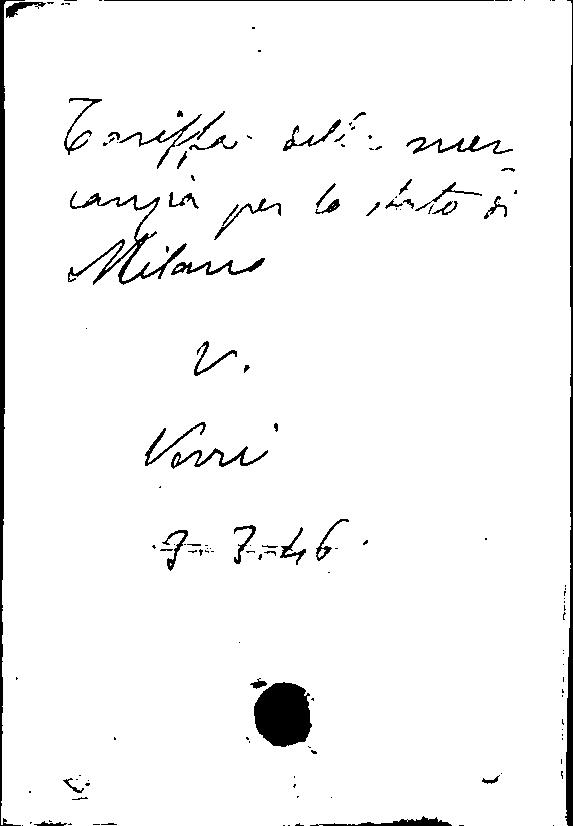 Tariffa della mer
canzia per lo stato di
Milano
V.
Verri